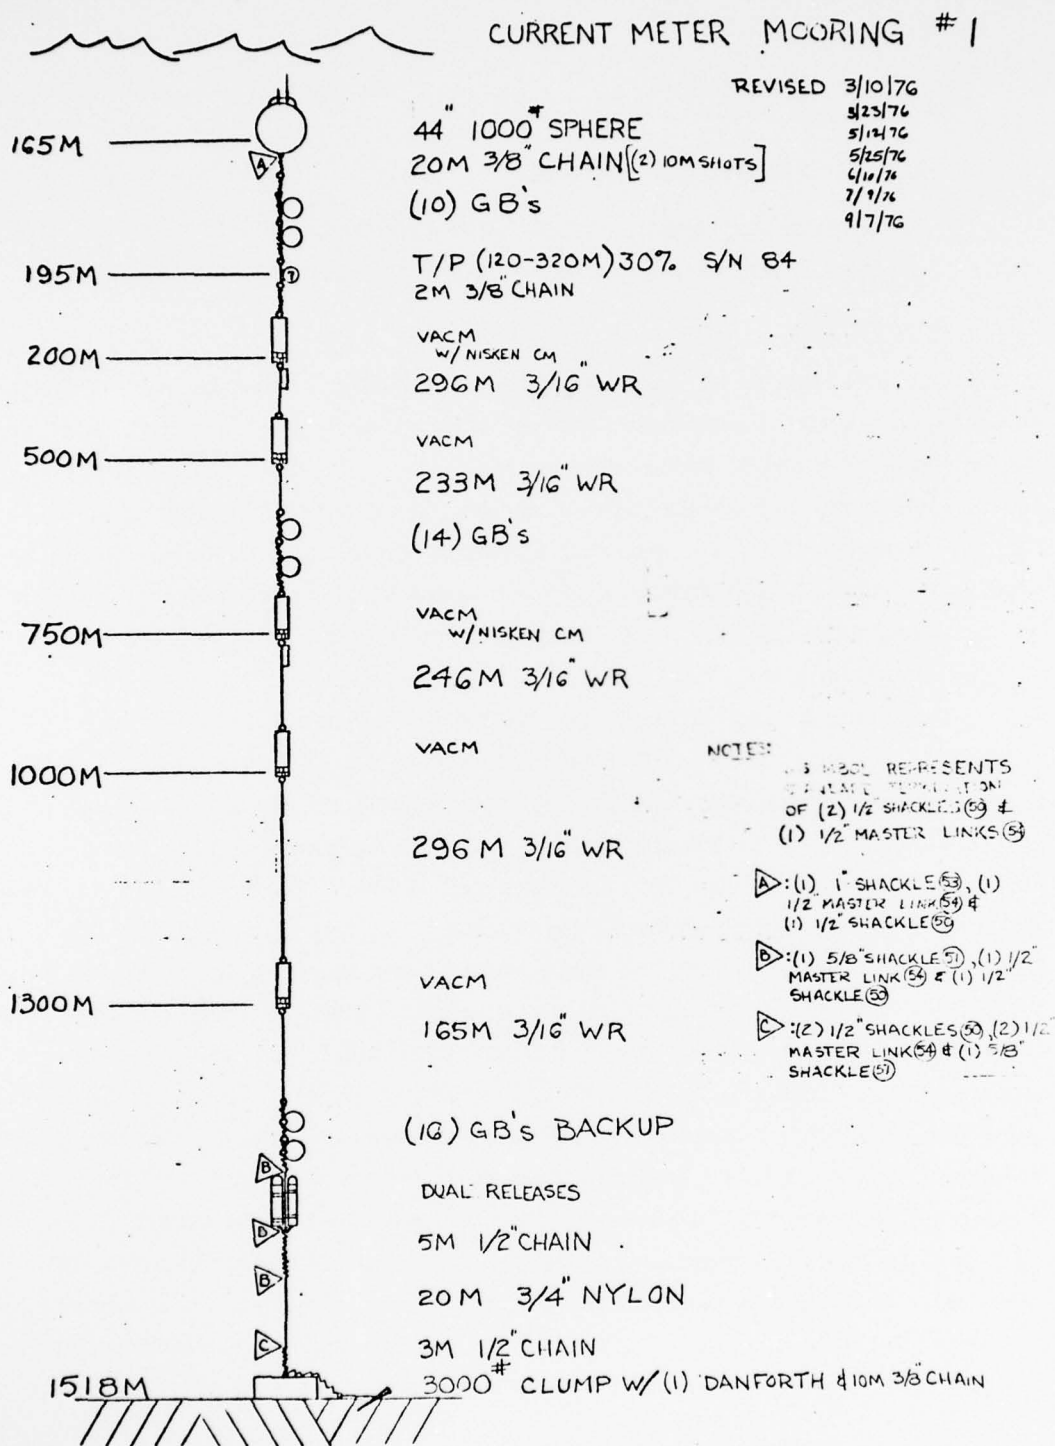 CURRENT METER MOORING #1
REVISED 3/10/76
3/23/76
5/12/76
5/25/76
6/10/76
7/9/76
9/7/76
165M
44" 1000# SPHERE
A
20M 3/8" CHAIN[(2) 10M SHOTS]
(10) GB's
195M
T/P (120-320M) 30% S/N 84
2M 3/8" CHAIN
200M
VACM
W/ NISKEN CM
296M 3/16" WR
500M
VACM
233M 3/16" WR
(14) GB's
750M
VACM
W/ NISKEN CM
246M 3/16" WR
1000M
VACM
296M 3/16" WR
1300M
VACM
165M 3/16" WR
(16) GB's BACKUP
B
DUAL RELEASES
D
5M 1/2" CHAIN
B
20M 3/4" NYLON
C
3M 1/2" CHAIN
1518M
3000# CLUMP W/ (1) DANFORTH & 10M 3/8" CHAIN
NOTES:
REPRESENTS
OF (2) 1/2" SHACKLES &
(1) 1/2" MASTER LINKS 54
A: (1) 1" SHACKLE 53, (1)
1/2" MASTER LINK 54 &
(1) 1/2" SHACKLE 50
B: (1) 5/8" SHACKLE 51, (1) 1/2"
MASTER LINK 54 & (1) 1/2"
SHACKLE 50
C: (2) 1/2" SHACKLES 50, (2) 1/2"
MASTER LINK 54 & (1) 5/8"
SHACKLE